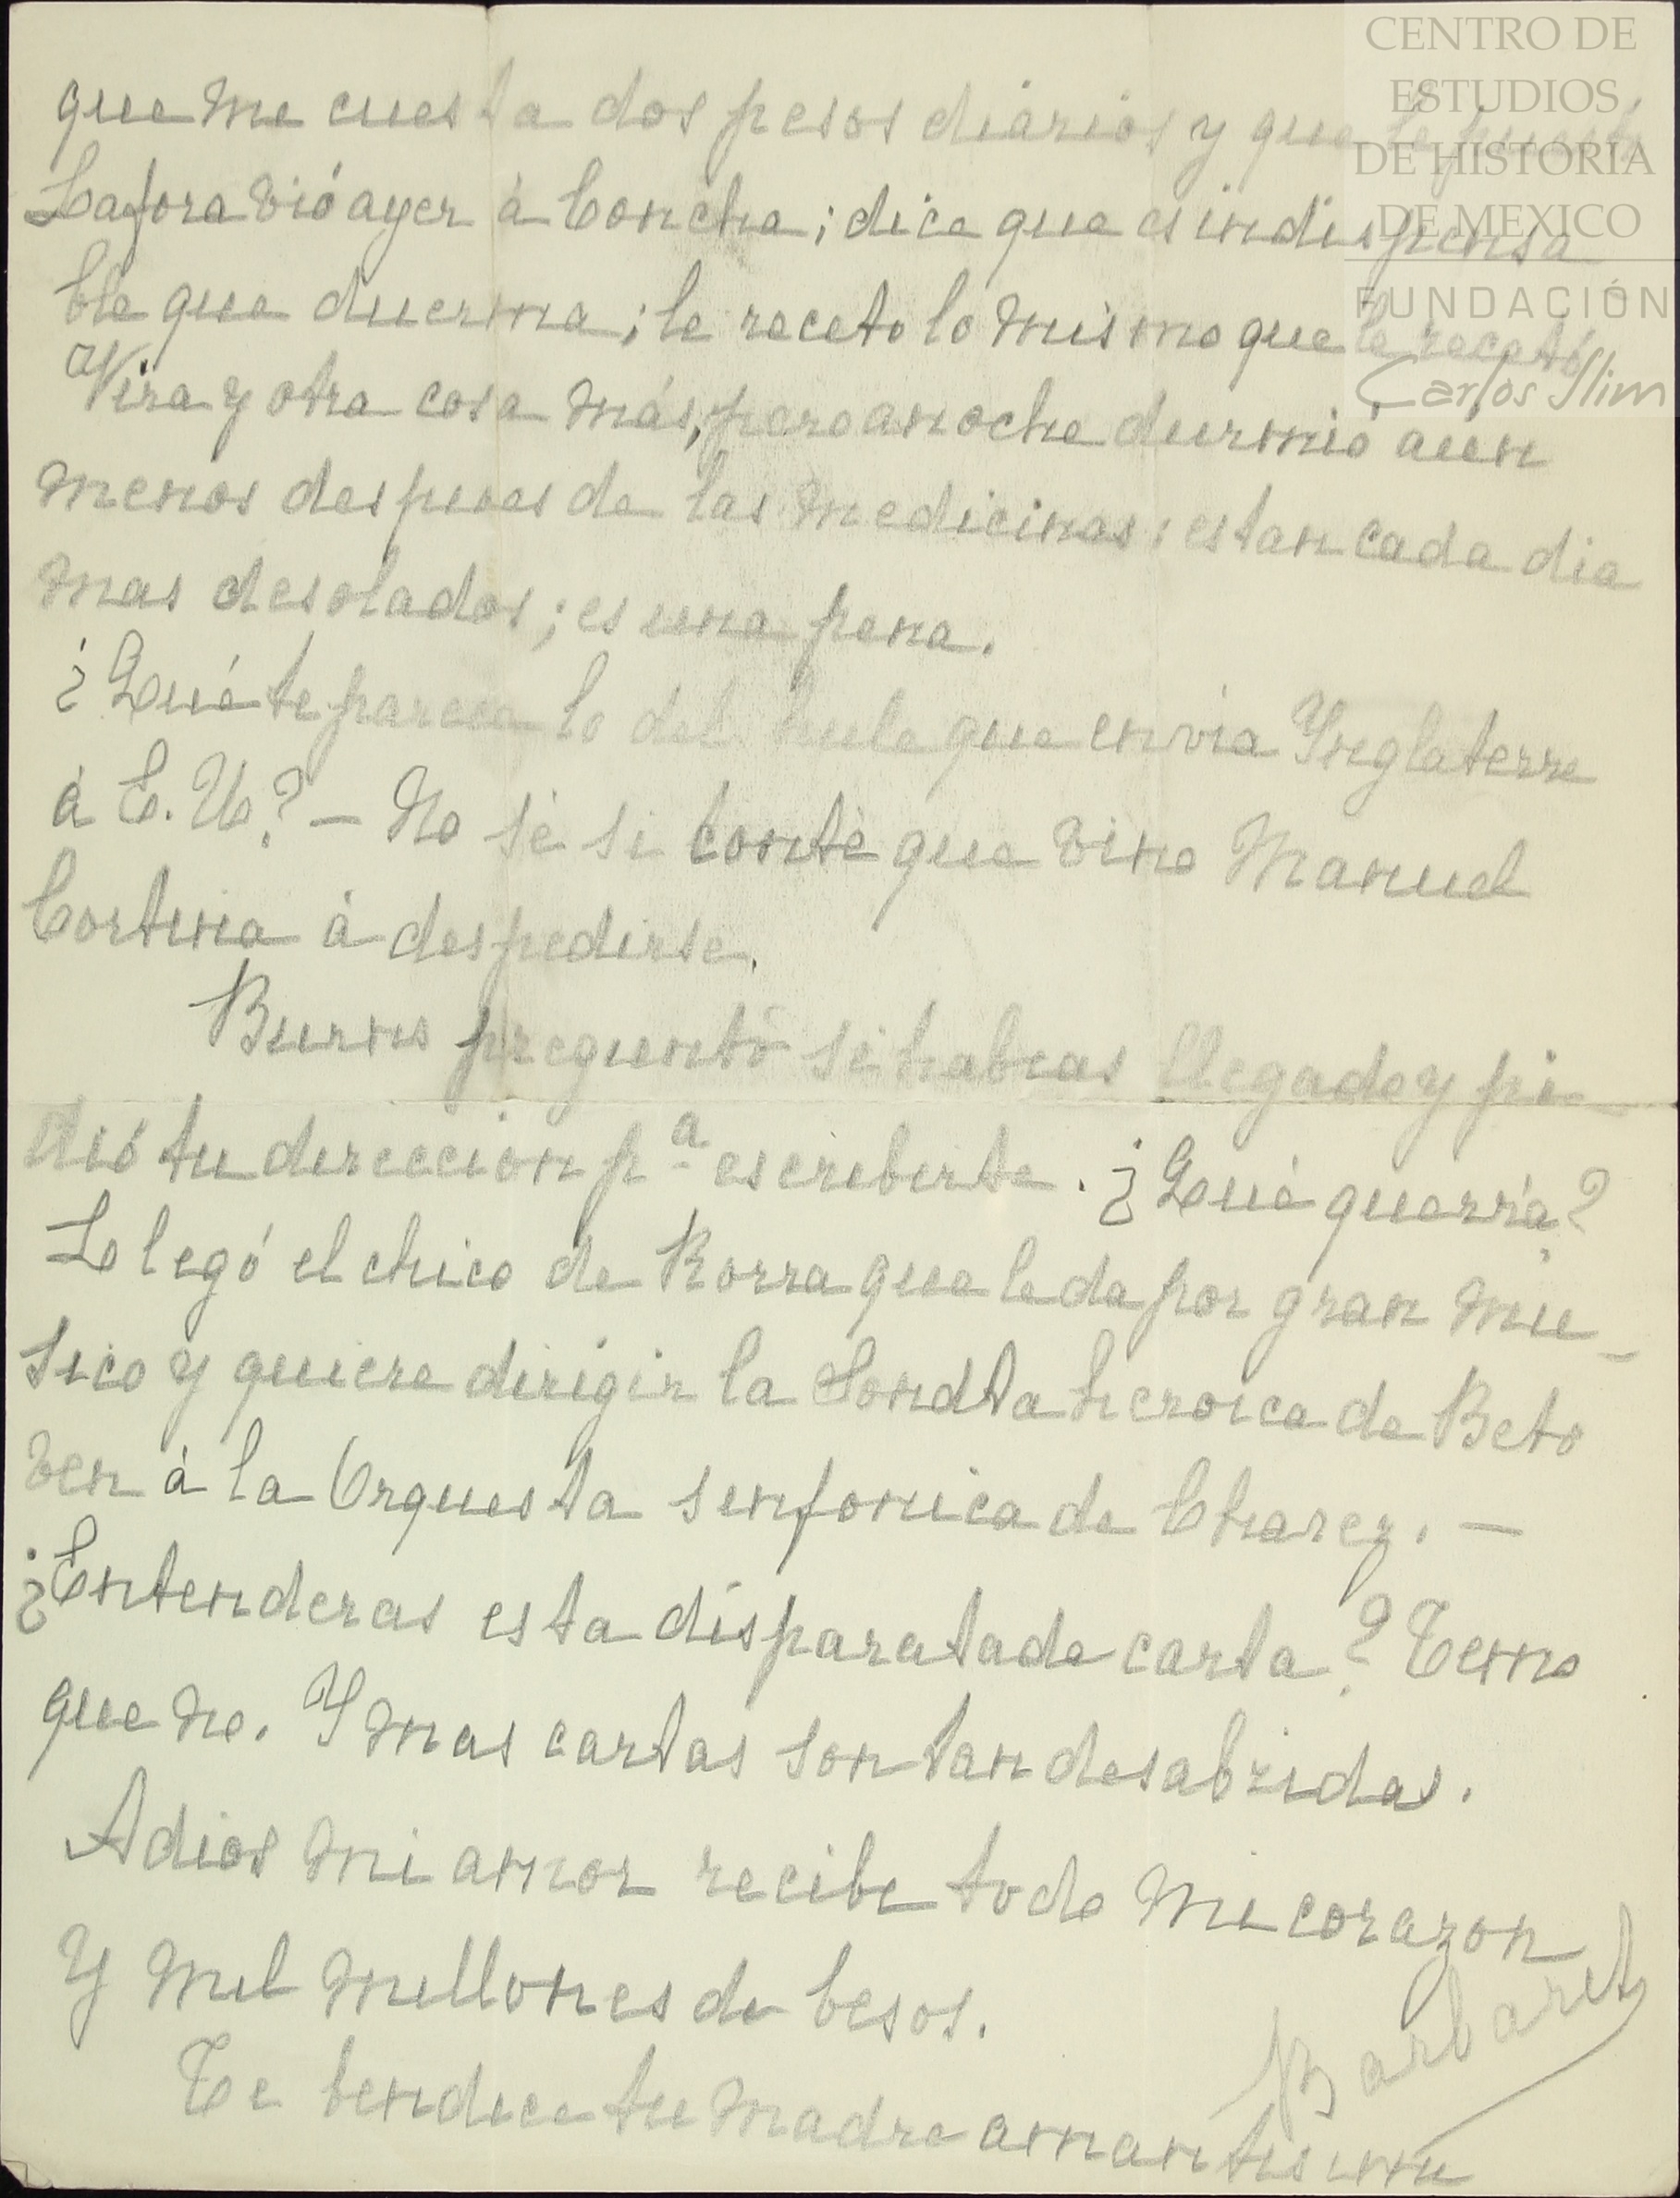 CENTRO DE
ESTUDIOS
DE HISTORIA
DE MEXICO
FUNDACIÓN
Carlos Slim
que me cuesta dos pesos diarios y que
Lafora vió ayer á Concha; dice que es indispensa
ble que duerma; le receto lo mismo que le recetó
Vira y otra cosa más, pero anoche durmió aun
menos despues de las medicinas: estan cada dia
mas desolados; es una pena.
¿Qué te parece lo del hule que envia Ynglaterra
á E. U.? — No sé si conté que vino Manuel
Cortina á despedirse.
Burns preguntó si habias llegado y pi-
dió tu direccion pª escribirte. ¿Qué querría?
Llegó el chico de Rorra que le da por gran mu-
sico y quiere dirigir la Sonata heroica de Beto
ven á la Orquesta sinfonica de Chavez. —
¿Entenderas esta disparatada carta? Temo
que no. Y mas cartas son tan desabridas.
Adios mi amor recibe todo mi corazon
y mil millones de besos.
Te bendice tu madre amantisima
Barbarita